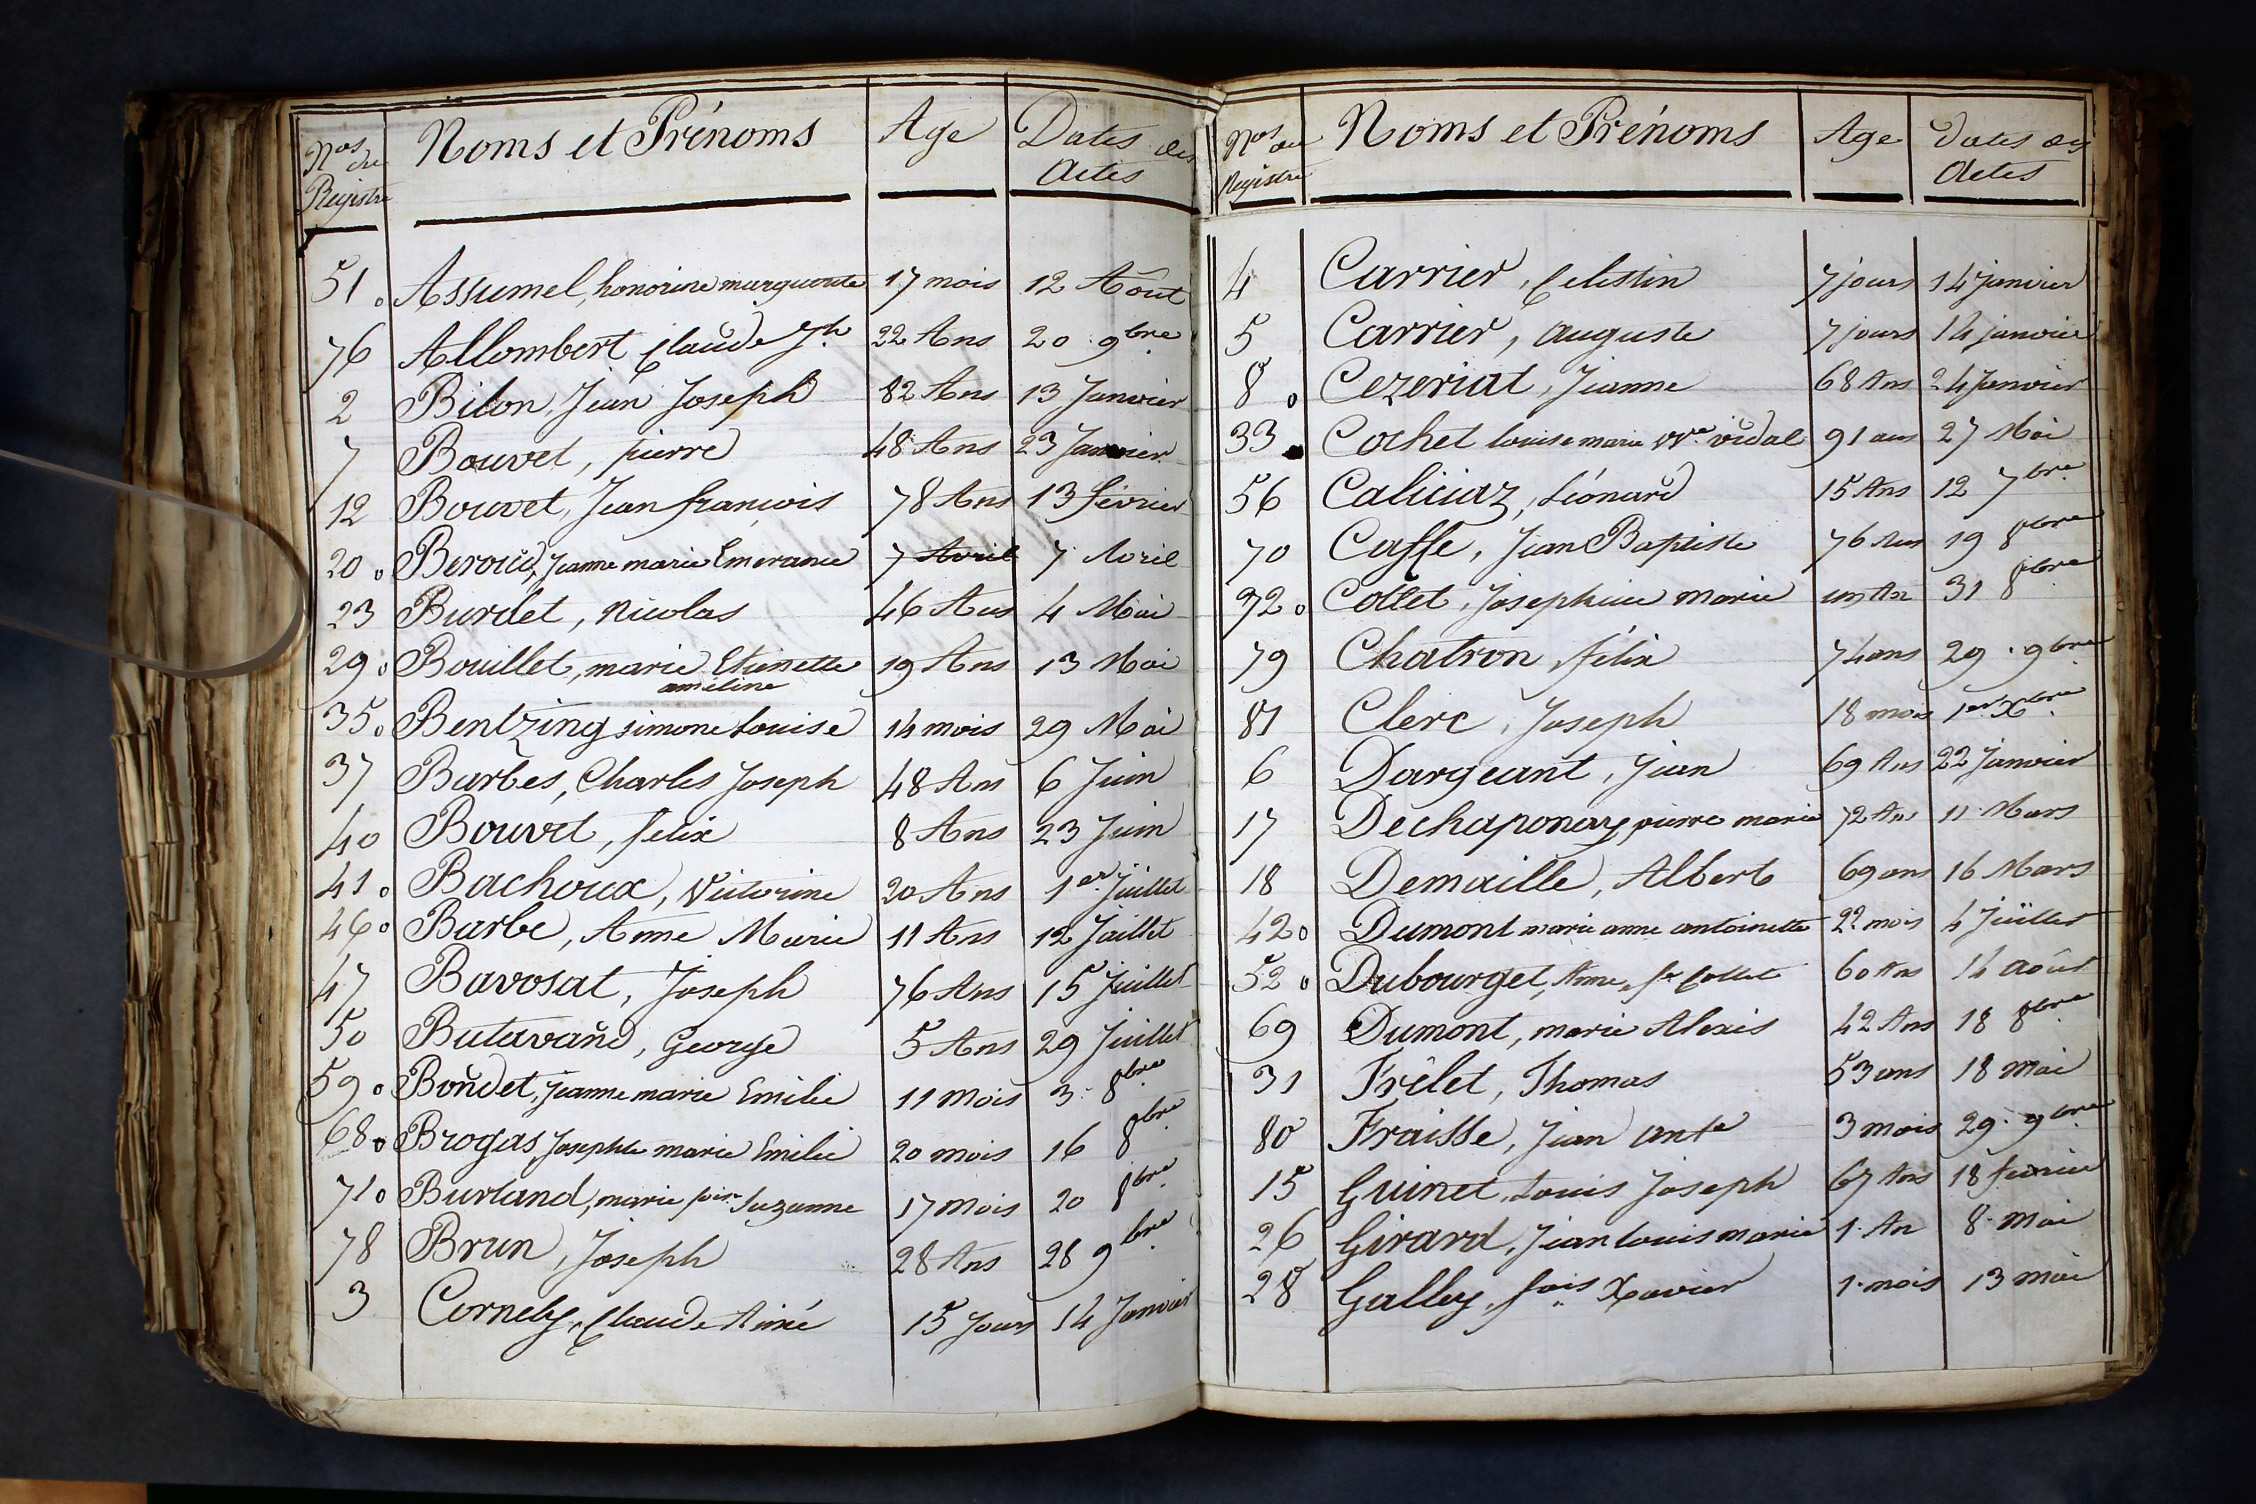 Nos du Registre Noms et Prénoms Age Dates des Actes
51 Assumel, honorine marguerite 17 mois 12 Août
76 Allombert Claude Jh 22 Ans 20 9bre
2 Bilon, Jean Joseph 82 Ans 13 Janvier
7 Bouvet, pierre 48 Ans 23 Janvier
12 Bouvet, Jean françois 78 Ans 13 février
20 Beroud, Jeanne marie Emerance 7 Avril 7 Avril
23 Burdet, Nicolas 46 Ans 4 Mai
29 Bouillet, marie Etienette 19 Ans 13 Mai
ameline
35 Bentzing simone Louise 14 mois 29 Mai
37 Barbes, Charles Joseph 48 Ans 6 Juin
40 Bouvet, felix 8 Ans 23 Juin
41 Bachoux, Victorine 20 Ans 1er Juillet
46 Barbe, Anne Marie 11 Ans 12 Juillet
47 Bavosat, Joseph 76 Ans 15 Juillet
50 Butavand, George 5 Ans 29 Juillet
59 Bondet, Jeanne marie Emilie 11 Mois 3 8bre
68 Brogas, Josephte marie Emilie 20 mois 16 8bre
71 Burland, marie foise Suzanne 17 Mois 20 8bre
78 Brun, Joseph 28 Ans 28 9bre
3 Cornely, Claude Aimé 15 Jours 14 Janvier
Nos du Registre Noms et Prénoms Age Dates des Actes
4 Carrier, Celestin 7 jours 14 janvier
5 Carrier, auguste 7 jours 14 janvier
8 Cezeriat, Jeanne 68 Ans 24 Janvier
33 Cochet louise marie Vve vidal 91 ans 27 Mai
56 Caliciaz, Léonard 15 Ans 12 7bre
70 Caffe, Jean Baptiste 76 Ans 19 8bre
72 Collet, Josephine marie un An 31 8bre
79 Chatron, félix 74 ans 29 9bre
81 Clerc, Joseph 18 mois 1er Xbre
6 Dargeant, Jean 69 Ans 22 Janvier
17 Dechaponay, pierre marie 72 Ans 11 Mars
18 Demaille, Albert 69 ans 16 Mars
42 Dumont marie anne antoinette 22 mois 4 Juillet
52 Dubourget, Anne, fe Collet 60 Ans 14 août
69 Dumont, marie Alexis 42 Ans 18 8bre
31 Frêlet, Thomas 53 ans 18 mai
80 Fraisse, Jean ante 3 mois 29 9bre
15 Guinet, Louis Joseph 67 Ans 18 fevrier
26 Girard, Jean louis marie 1 An 8 Mai
28 Galley, fois Xavier 1 mois 13 mai